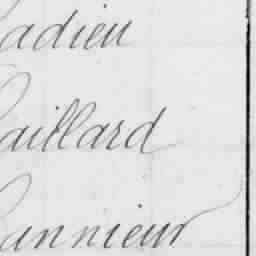 adieu
aillard
annieur